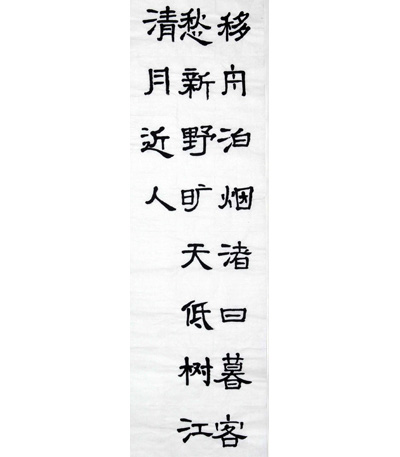 移舟泊烟渚日暮客
愁新野旷天低树江
清月近人